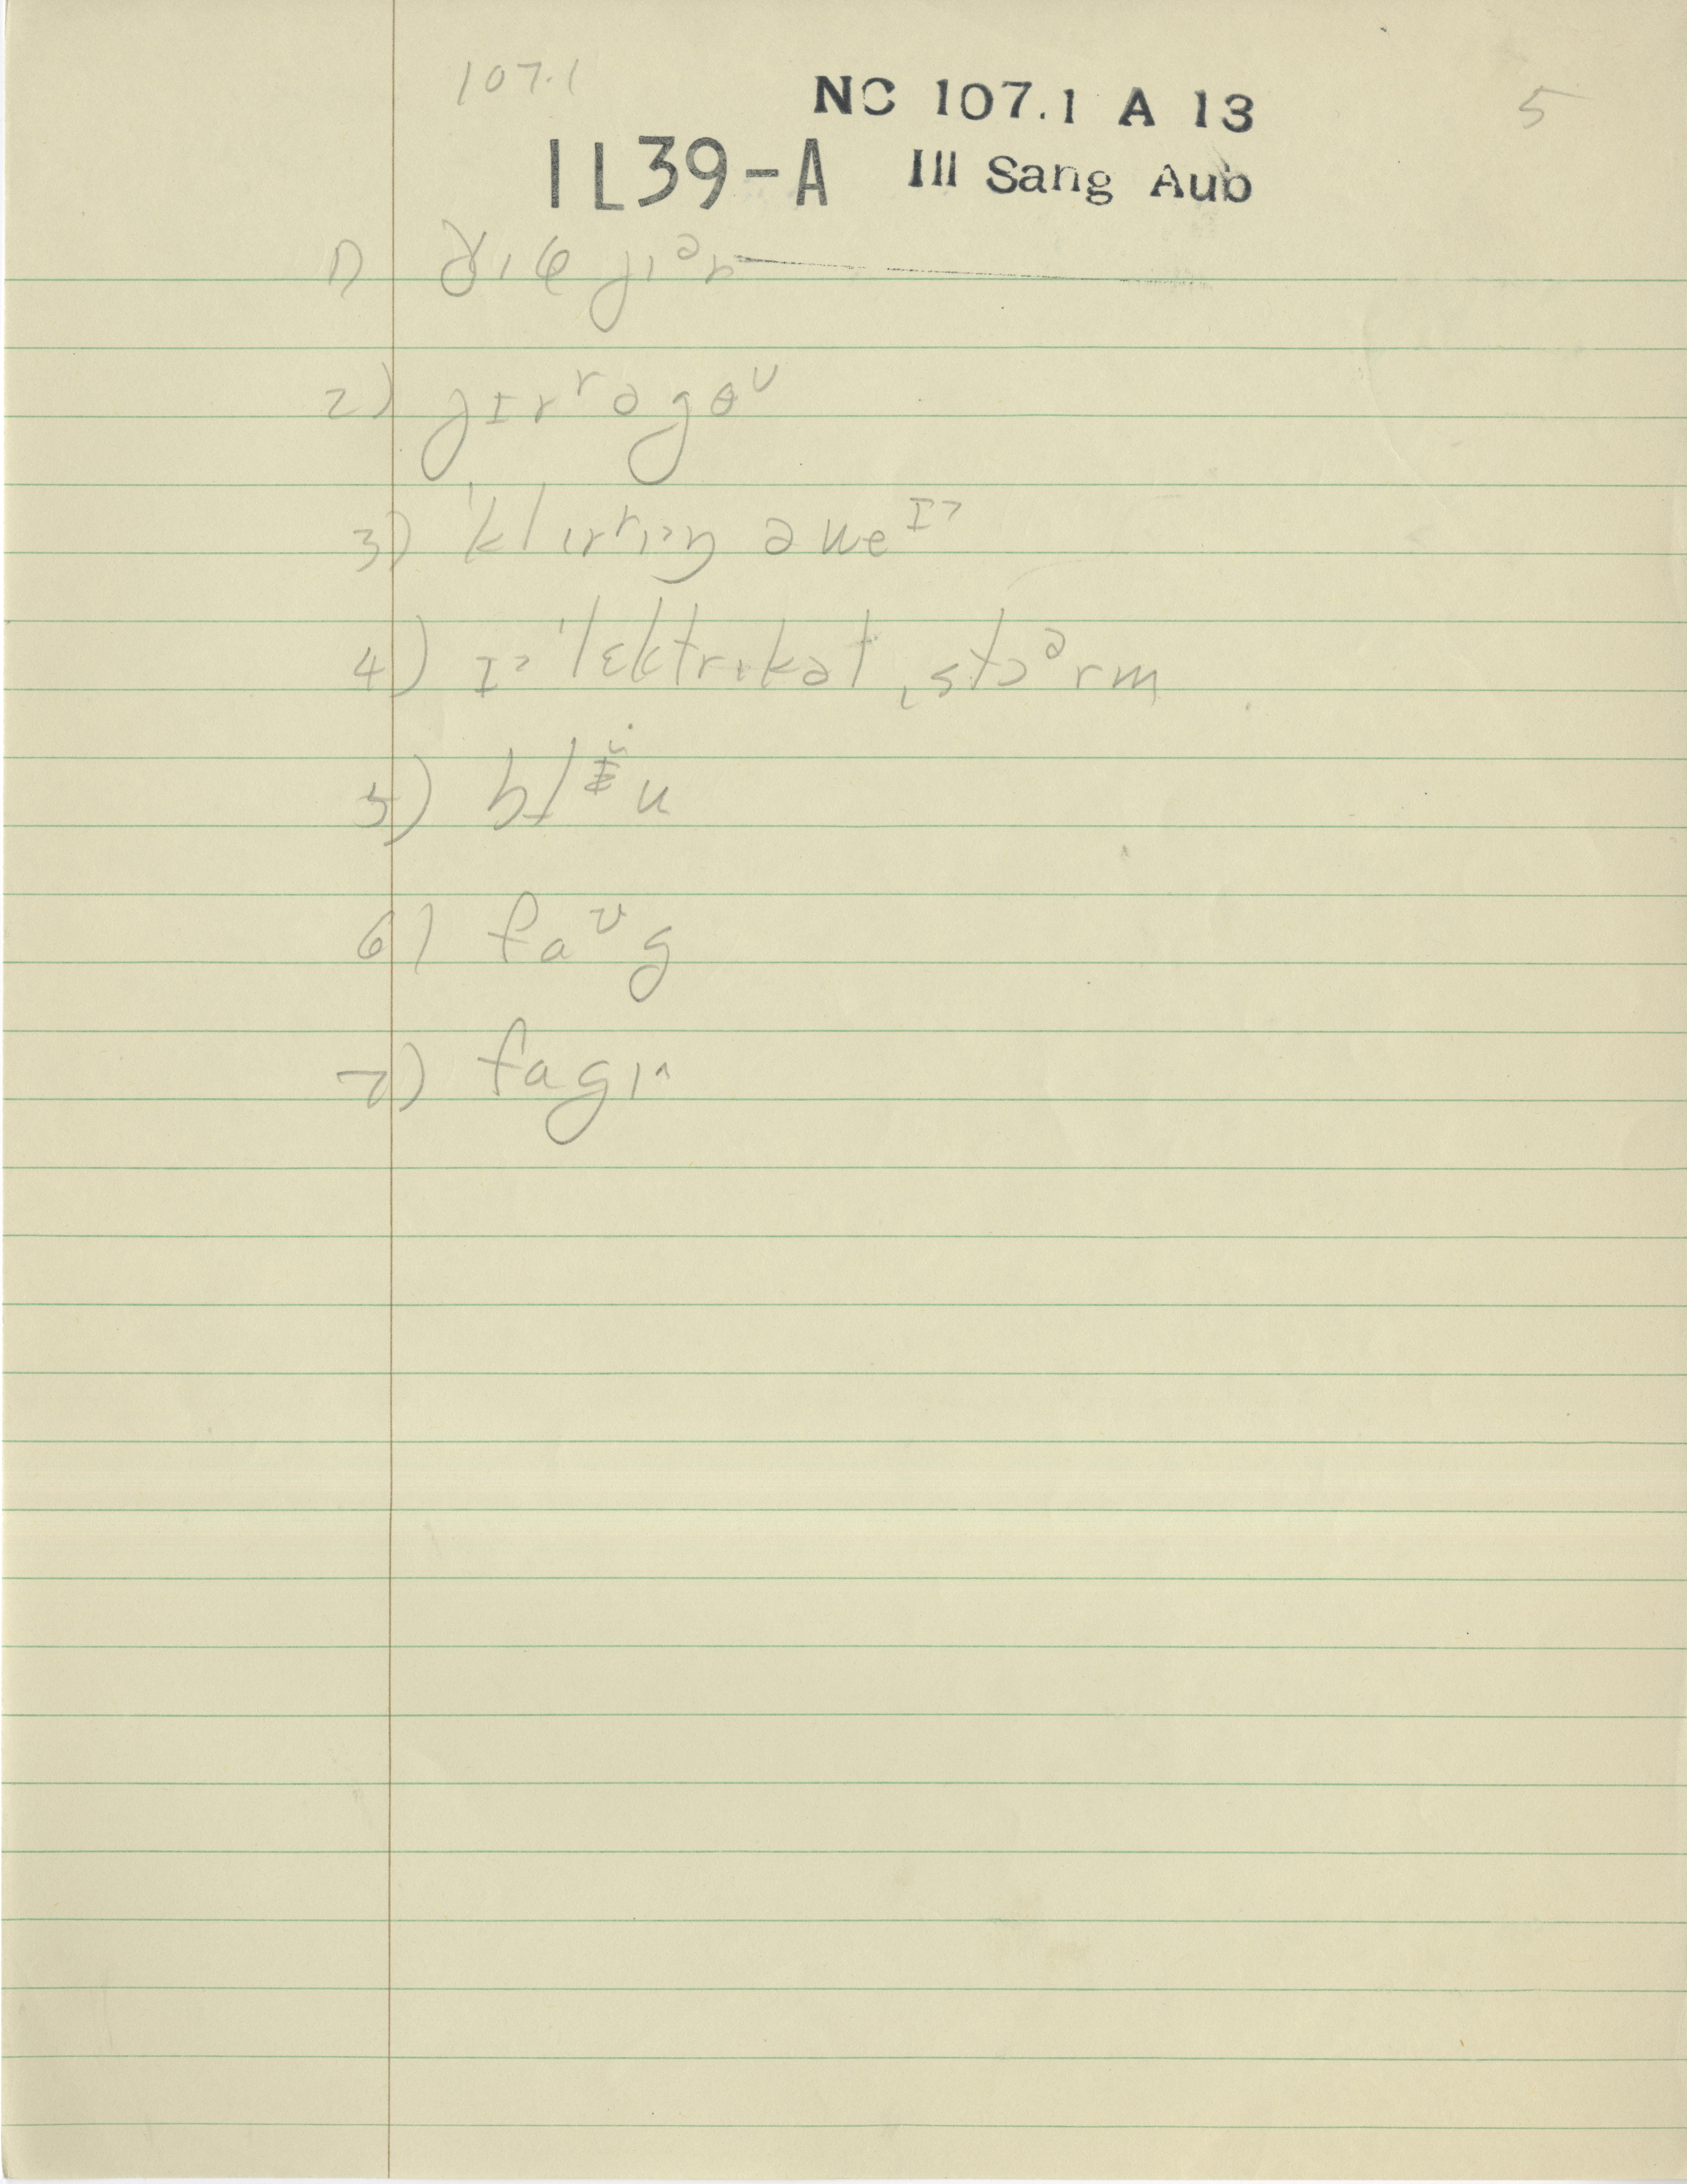 107.1
NC 107.1 A 13
5
1L39-A Ill Sang Aub
1) ðɪs jɪᵊr
2) jɪrʳəgoᵁ
3) ˈklɪrʳɪŋ əweᴵ
4) ɪˈlɛktrɪkət ˌstɔᵊrm
5) blu
6) faᶹg
7) fagɪ^